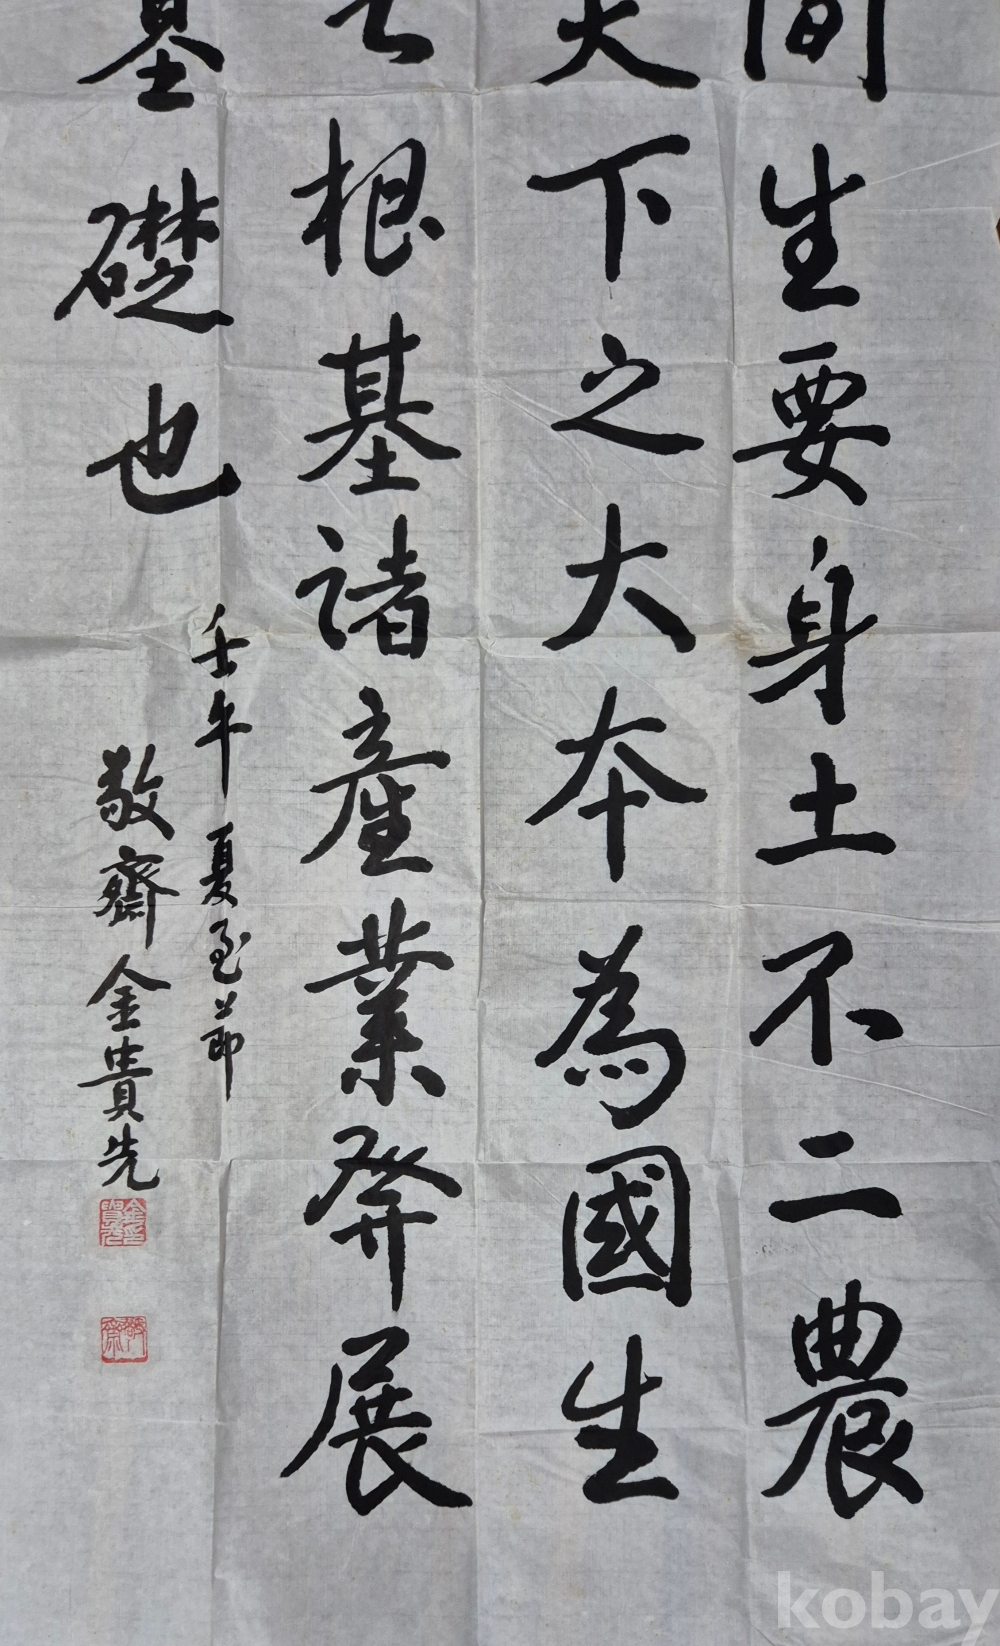 間生要身土不二農
天下之大本為國生
根基諸産業發展
基礎也
壬午 夏至節
敬齋金貴先
kobay